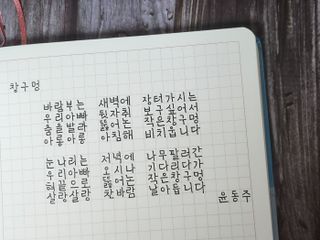 창구멍
바람부는 새벽에 장터가시는
우리아빠 뒷자취 보구싶어서
춤을발라 뚫어논 작은창구멍
아롱아롱 아침해 비치웁니다
눈나리는 저녁에 나무팔러간
우리아빠 오시나 기다리다가
혀끝으로 뚫어논 작은창구멍
살랑살랑 찬바람 날아듭니다
윤동주